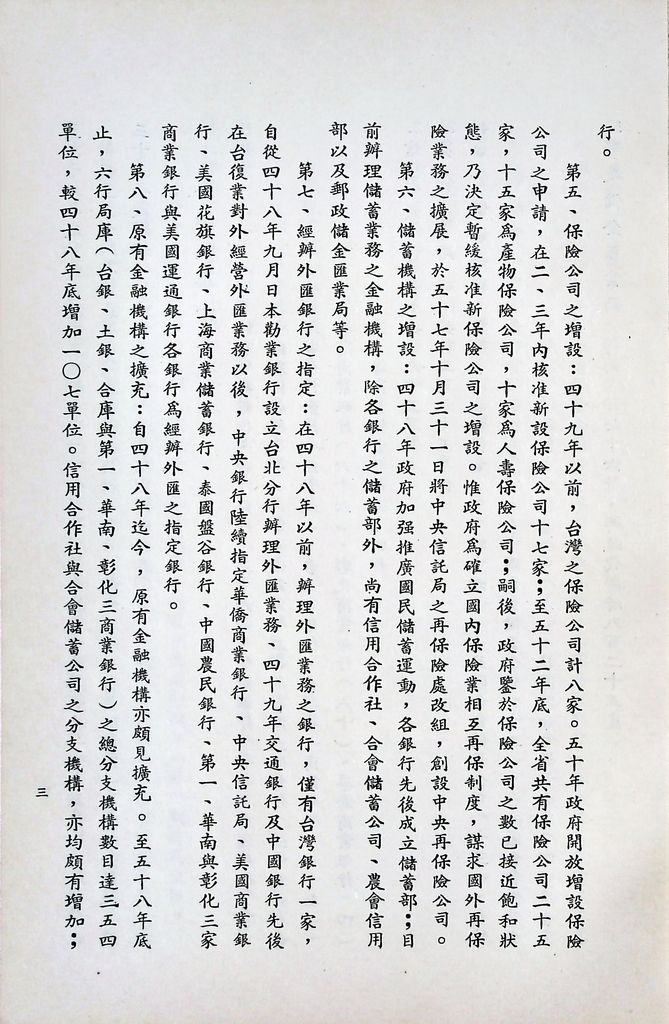 行。
第五、保險公司之增設：四十九年以前，台灣之保險公司計八家。五十年政府開放增設保險
公司之申請，在二、三年內核准新設保險公司十七家；至五十二年底，全省共有保險公司二十五
家，十五家爲產物保險公司，十家爲人壽保險公司；嗣後，政府鑒於保險公司之數已接近飽和狀
態，乃決定暫緩核准新保險公司之增設。惟政府爲確立國內保險業相互再保制度，謀求國外再保
險業務之擴展，於五十七年十月三十一日將中央信託局之再保險處改組，創設中央再保險公司。
第六、儲蓄機構之增設：四十八年政府加强推廣國民儲蓄運動，各銀行先後成立儲蓄部；目
前辦理儲蓄業務之金融機構，除各銀行之儲蓄部外，尚有信用合作社、合會儲蓄公司、農會信用
部以及郵政儲金匯業局等。
第七、經辦外匯銀行之指定：在四十八年以前，辦理外匯業務之銀行，僅有台灣銀行一家，
自從四十八年九月日本勸業銀行設立台北分行辦理外匯業務、四十九年交通銀行及中國銀行先後
在台復業對外經營外匯業務以後，中央銀行陸續指定華僑商業銀行、中央信託局、美國商業銀
行、美國花旗銀行、上海商業儲蓄銀行、泰國盤谷銀行、中國農民銀行、第一、華南與彰化三家
商業銀行與美國運通銀行各銀行爲經辦外匯之指定銀行。
第八、原有金融機構之擴充：自四十八年迄今，原有金融機構亦頗見擴充。至五十八年底
止，六行局庫（台銀、土銀、合庫與第一、華南、彰化三商業銀行）之總分支機構數目達三五四
單位，較四十八年底增加一〇七單位。信用合作社與合會儲蓄公司之分支機構，亦均頗有增加；
三